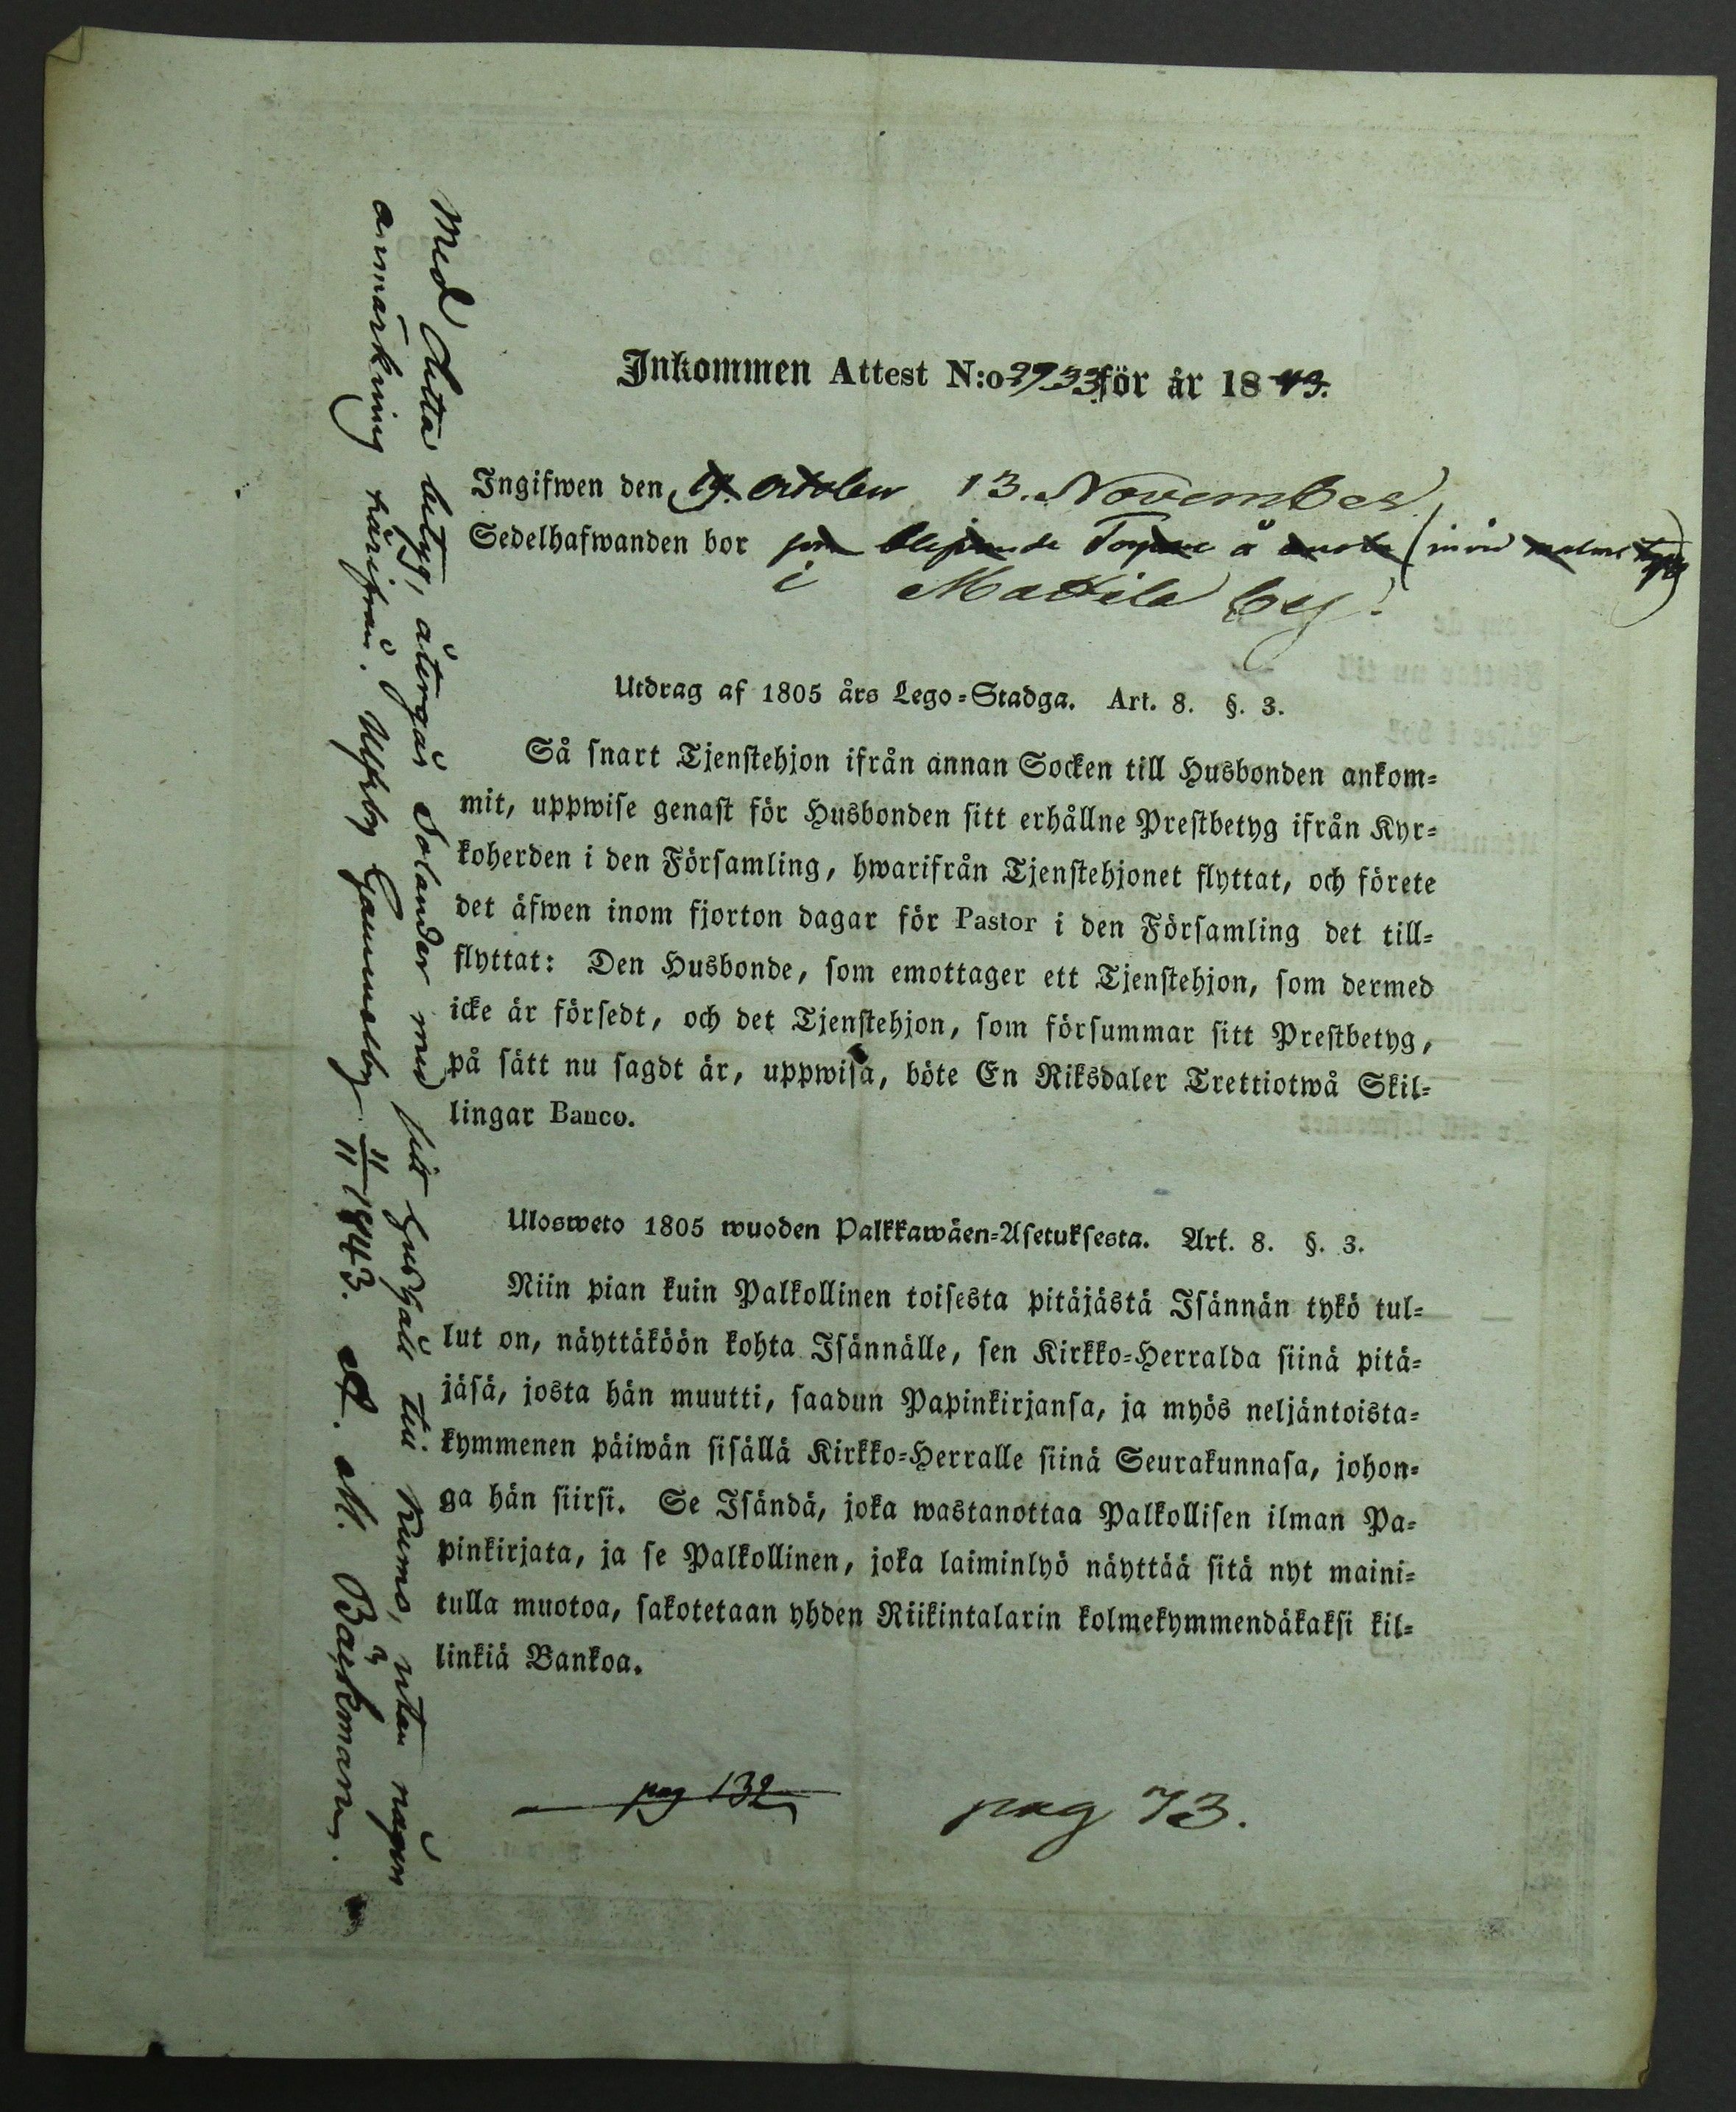 Inkommen Attest N:o 33 för år 1843.
Ingifwen den October 13. November
Sedelhafwanden bor som blifwande å
i Mattila by.
Utdrag af 1805 års Lego=Stadga. Art. 8. §. 3.
Så snart Tjenstehjon ifrån annan Socken till Husbonden ankom=
mit, uppwise genast för Husbonden sitt erhållne Prestbetyg ifrån Kyr=
koherden i den Församling, hwarifrån Tjenstehjonet flyttat, och förete
det äfwen inom fjorton dagar för Pastor i den Församling det till=
flyttat: Den Husbonde, som emottager ett Tjenstehjon, som dermed
icke är försedt, och det Tjenstehjon, som försummar sitt Prestbetyg,
på sätt nu sagdt är, uppwisa, böte En Riksdaler Trettiotwå Skil=
lingar Banco.
Ulosweto 1805 wuoden Palkkawäen=Asetuksesta. Art. 8. §. 3.
Niin pian kuin Palkollinen toisesta pitäjästä Isännän tykö tul=
lut on, näyttäköön kohta Isännälle, sen Kirkko=Herralda siinä pitä=
jäsä, josta hän muutti, saadun Papinkirjansa, ja myös neljäntoista=
kymmenen päiwän sisällä Kirkko=Herralle siinä Seurakunnasa, johon=
ga hän siirsi. Se Isändä, joka wastanottaa Palkollisen ilman Pa=
pinkirjata, ja se Palkollinen, joka laiminlyö näyttää sitä nyt maini=
tulla muotoa, sakotetaan yhden Riikintalarin kolmekymmendäkaksi kil=
linkiä Bankoa.
pag 132
pag 73.
Med detta betyg, återgår Solander med sitt hushåll till Kumo, utan någon
anmärkning härifrån. Ulfsby Gammelby 11/11 1843. A. M. Bäckman.